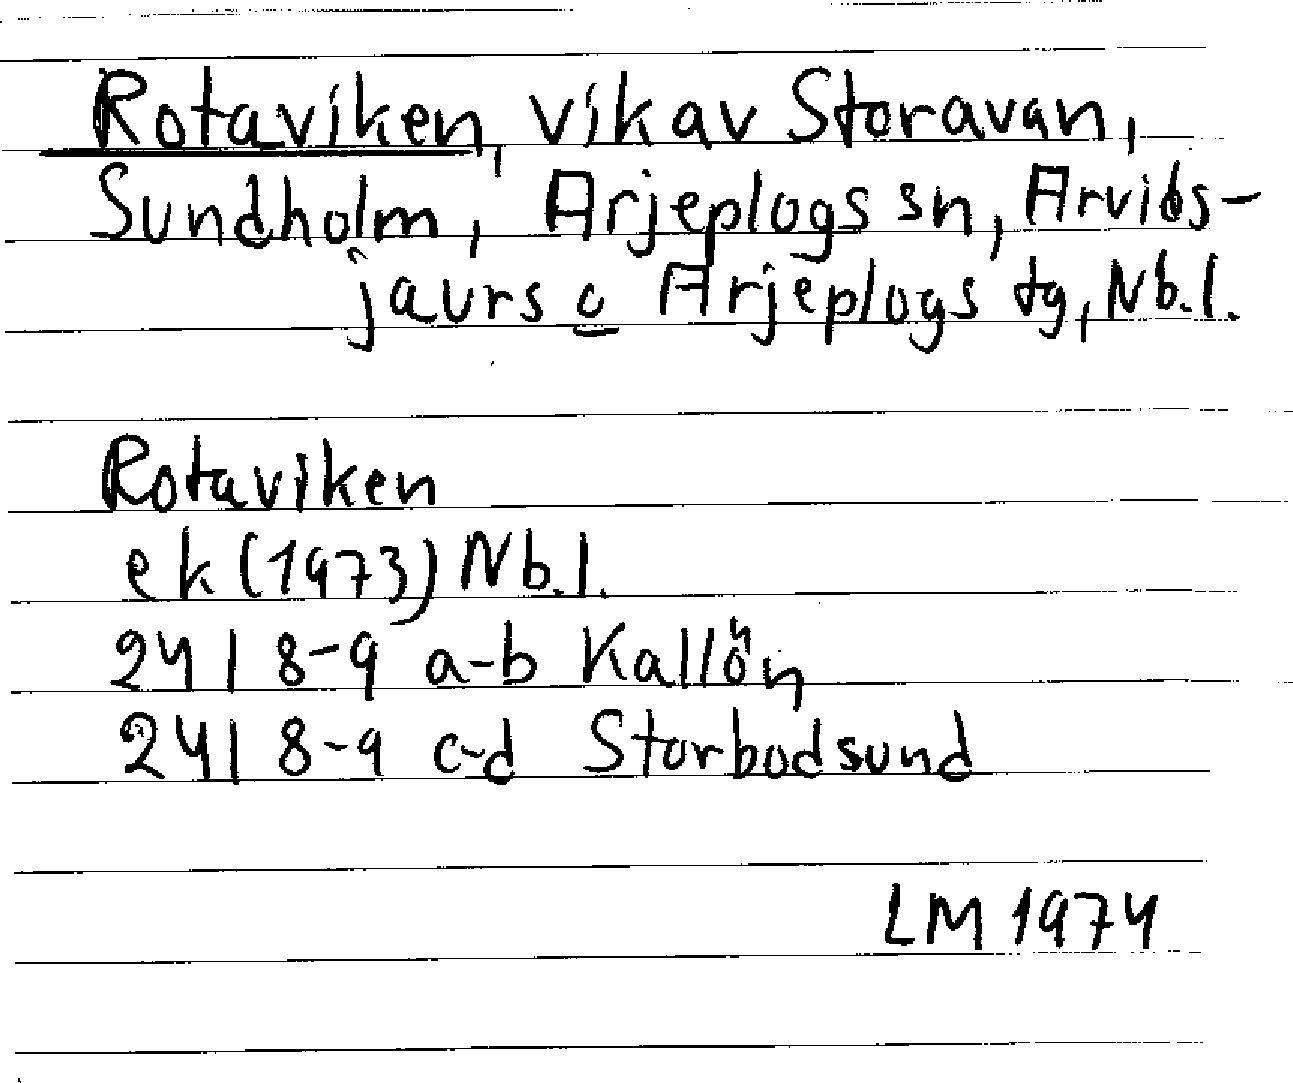 Rotaviken, vik av Storavan,
Sundholm, Arjeplogs sn, Arvids-
jaurs o Arjeplogs tg, Nb.l.
Rotaviken
ek (1973) Nb.l.
24 I 8-9 a-b Kallön
24 I 8-9 c-d Storbodsund
LM 1974